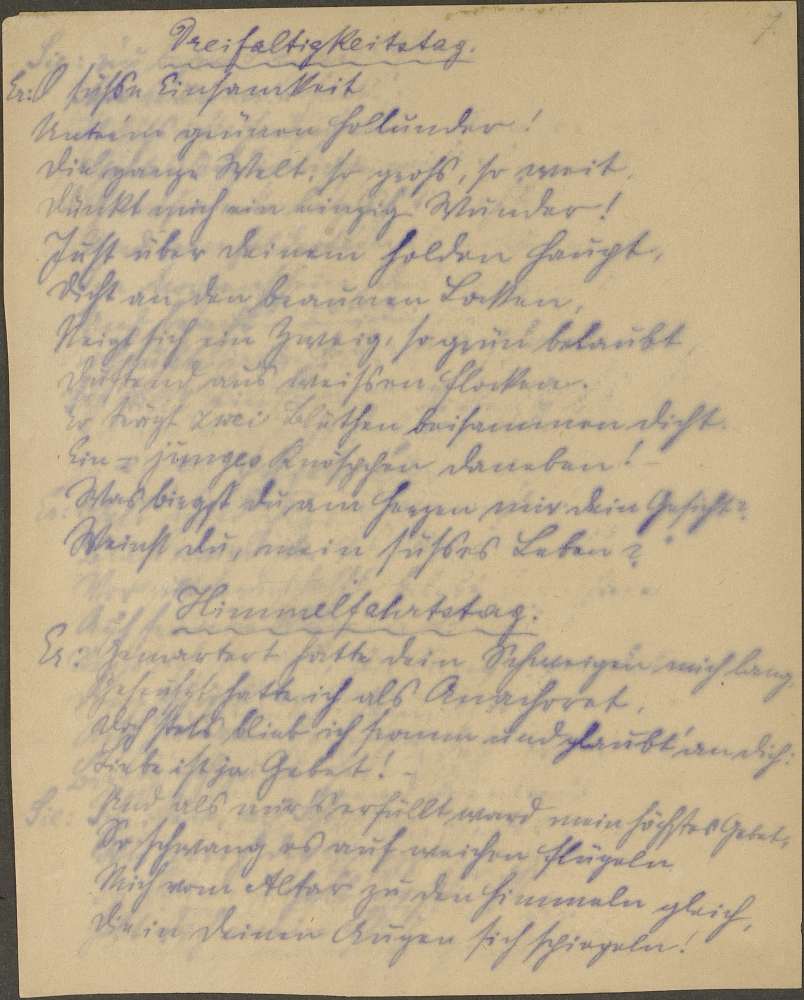 7.
Dreifaltigkeitstag.
Er: O süße Einsamkeit
Unterm grünen Hollunder!
Die ganze Welt, so groß, so weit,
Dünkt mich ein einzig Wunder!
Just über deinem holden Haupt,
Dicht an den braunen Locken,
Neigt sich ein Zweig, so grün belaubt
Duftend aus weißen Flocken.
Er trägt zwei Blüthen beisammen dicht
Ein junges Knöspchen daneben! –
Was biegst du am Herzen mir dein Gesicht?
Weinst du, mein süßes Leben?
Himmelfahrtstag.
Er: Gemartert hatte dein Schweigen mich lang,
hatte ich als Anachoret,
Doch stets blieb ich fromm und glaubt' an dich:
Liebe ist ja Gebet! –
Und als nur's erfüllt ward mein höchstes Gebet,
So schwang es auf weichen Flügeln
Mich vom Altar zu den Himmeln gleich,
Die in deinen Augen sich spiegeln!